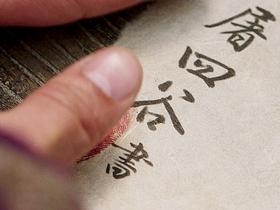 屠四谷書